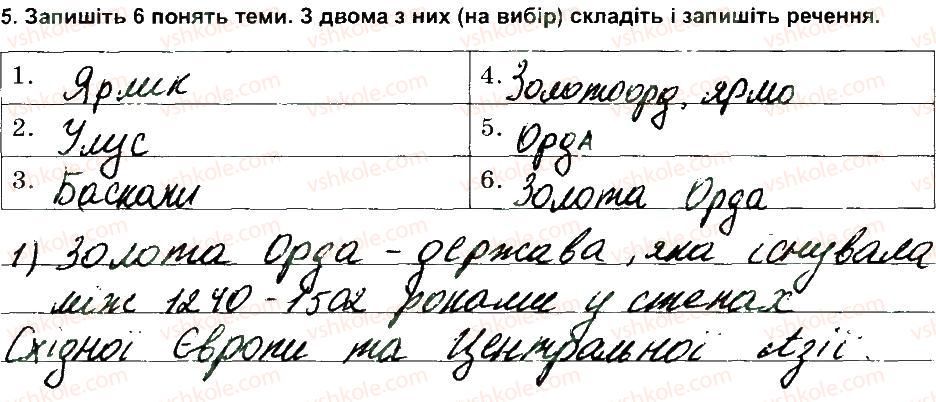 5. Запишіть 6 понять теми. З двома з них (на вибір) складіть і запишіть речення.
1. Ярлик
4. Золотоорд. ярмо
2. Улус
5. Орда
3. Баскаки
6. Золота Орда
1) Золота Орда - держава, яка існувала
між 1240-1502 роками у степах
Східної Європи та Центральної Азії.